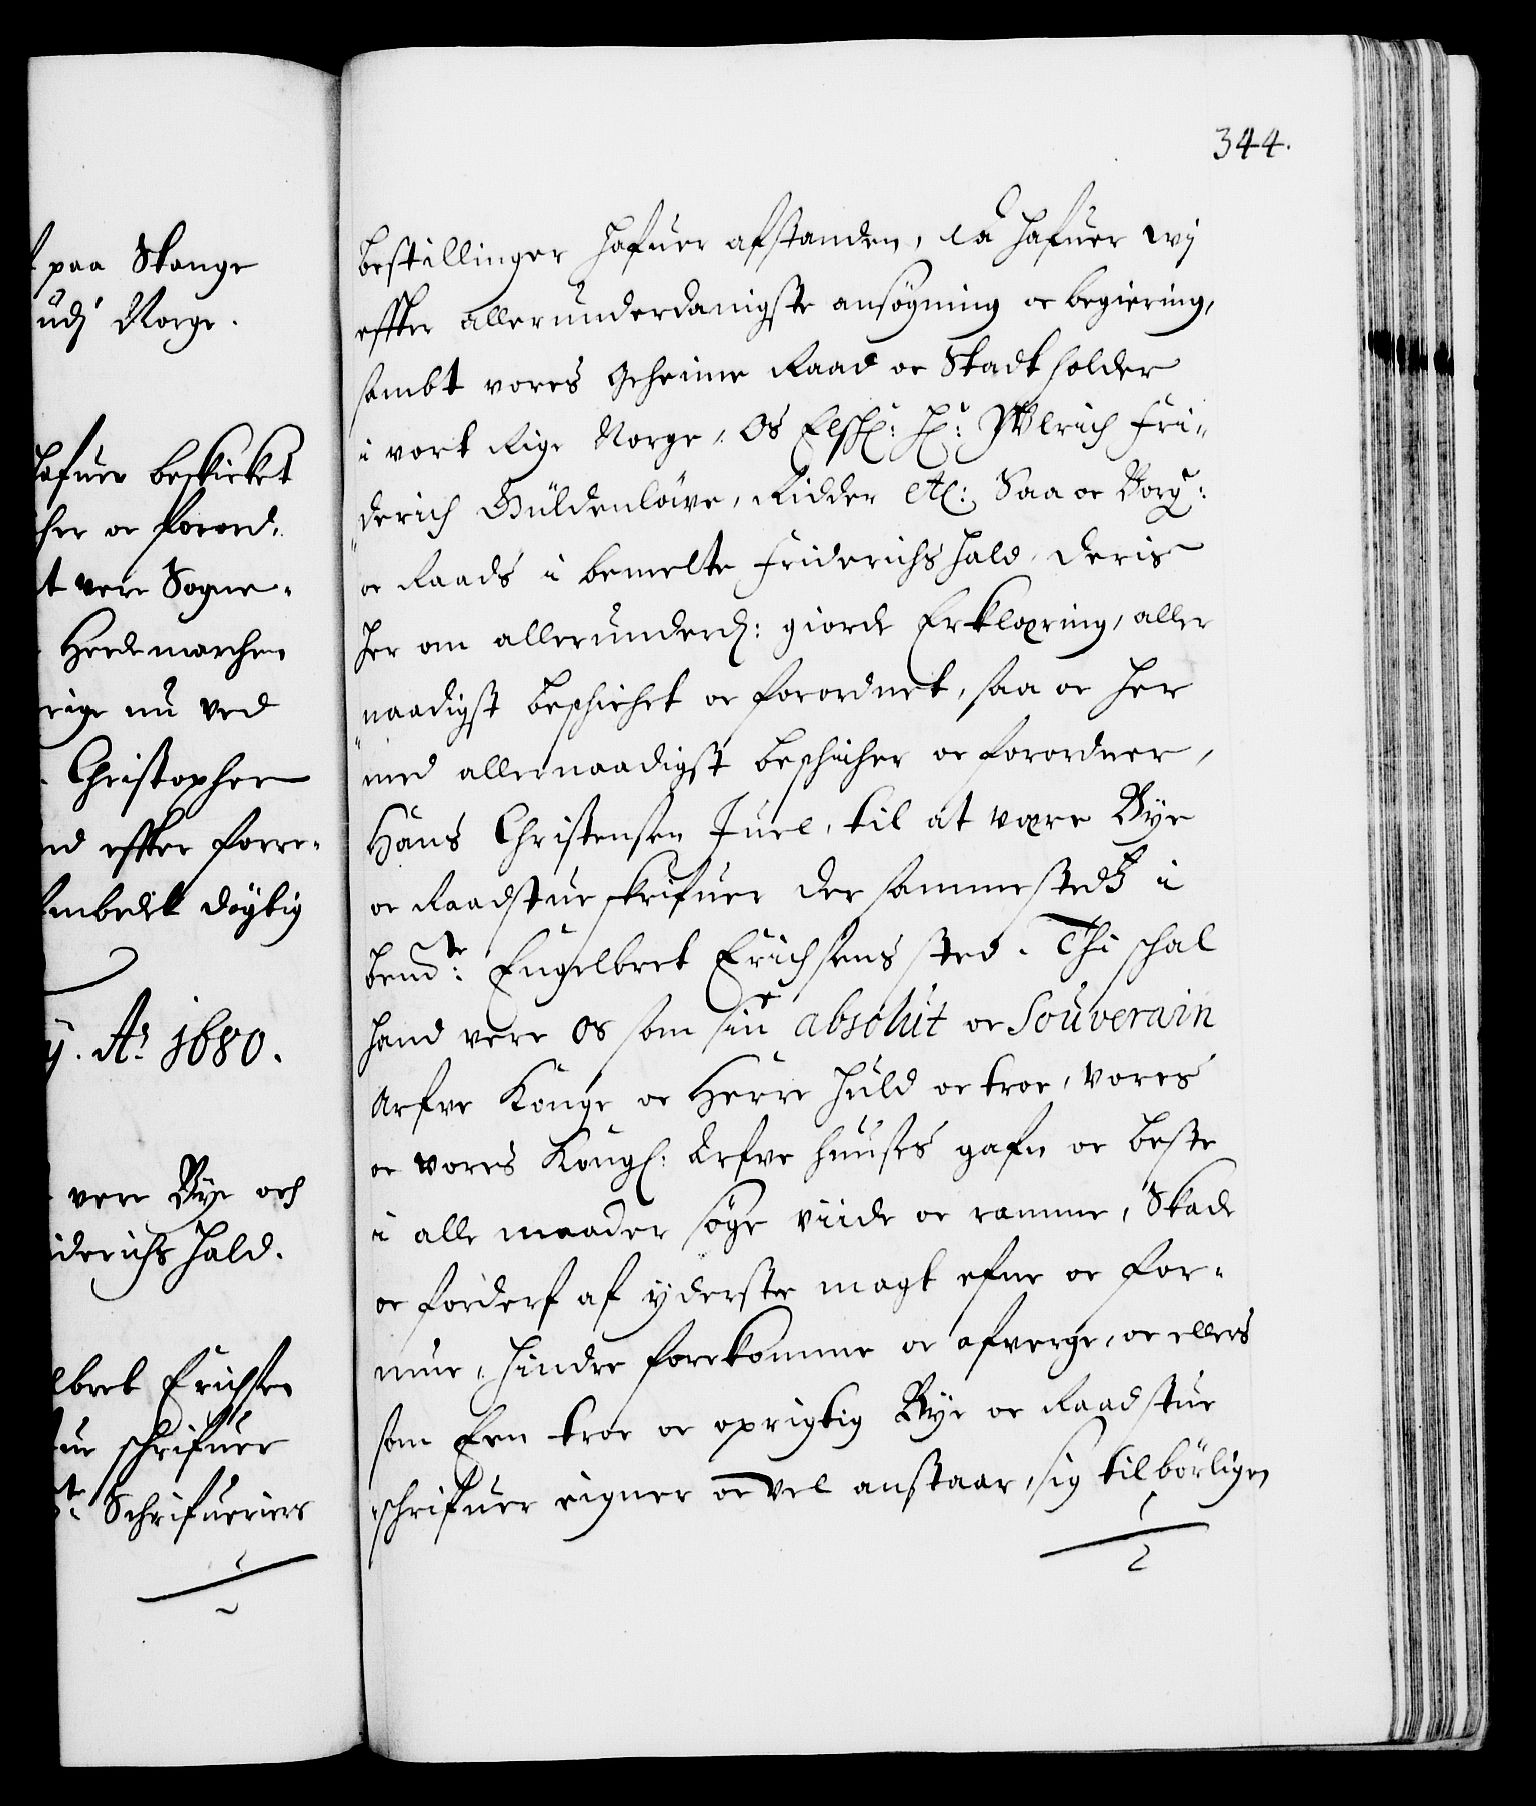 paa Stange
udj Norge.
hafuer beskicket
cher oc forord¬
t vere Sogne¬
Hedemarchen
rige nu ved
Christopher
nd effter forre¬
Embedet døgtig
y. Ao 1680.
vere Bye och
iderichs Hald.
lbret Erichsen
ue schrifuer
te Schrifueries
344.
bestillinger hafuer afstanden, da hafuer wj
effter allerunderdanigste ansøgning oc begiering,
sambt vores Geheime Raad oc Stadtholder
i vort Rige Norge, Os Elschl: Hr: Wlrich Fri¬
derich Güldenløwe, Ridder etc: Saa oc Borg:
oc Raads i bemelte Friderichs Hald, deris
her om allerunderd: giorde Erklæring, aller
naadigst beschichet oc forordnet, saa oc her
med allernaadigst beschicher oc forordner,
Hans Christensen Juel, til at være Bye
oc Raadstue skrifuer der sammestedtz i
bemte: Engelbret Erichsens sted. Thi schal
hand vere Os som sin absolut oc Souverain
Arfve Konge oc Herre huld oc troe, vores
oc vores Kongl: Arfve Huuses gafn oc beste
i alle maader søge viide oc ramme, Skade
oc forderf af yderste magt efne oc for¬
mue, hindre forekomme oc afverge, oc ellers
som Een troe oc oprigtig Bye oc Raadstue
schrifuer eigner oc vel anstaar, sig tilbørligen